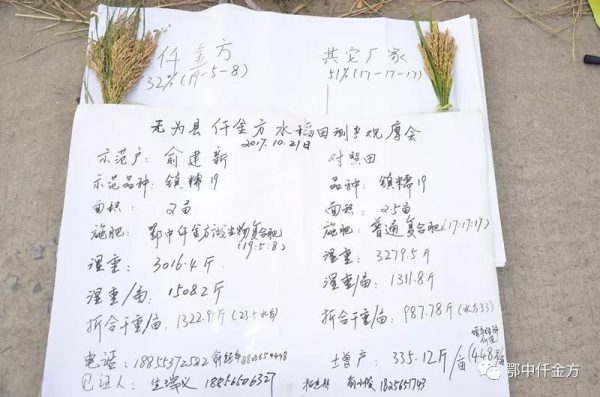 仟金方
32%(19-5-8)
其它厂家
51%(17-17-17)
无为县仟金方水稻田测产观摩会
2017.10.21日
示范户: 俞建新
对照田
示范品种: 镇糯19
品种: 镇糯19
面积: 2亩
面积: 2.5亩
施肥: 鄂中仟金方微生物复合肥
(19:5:8)
施肥: 普通复合肥(17:17:17)
湿重: 3016.4斤
湿重: 3279.5斤
湿重/亩: 1508.2斤
湿重/亩: 1311.8斤
折合干重/亩: 1322.9斤(23.5水分)
折合干重/亩: 987.78斤(水分33)
电话: 18855372582
增产: 335.12斤/亩(448
见证人: 18856506327
18256517143
鄂中仟金方